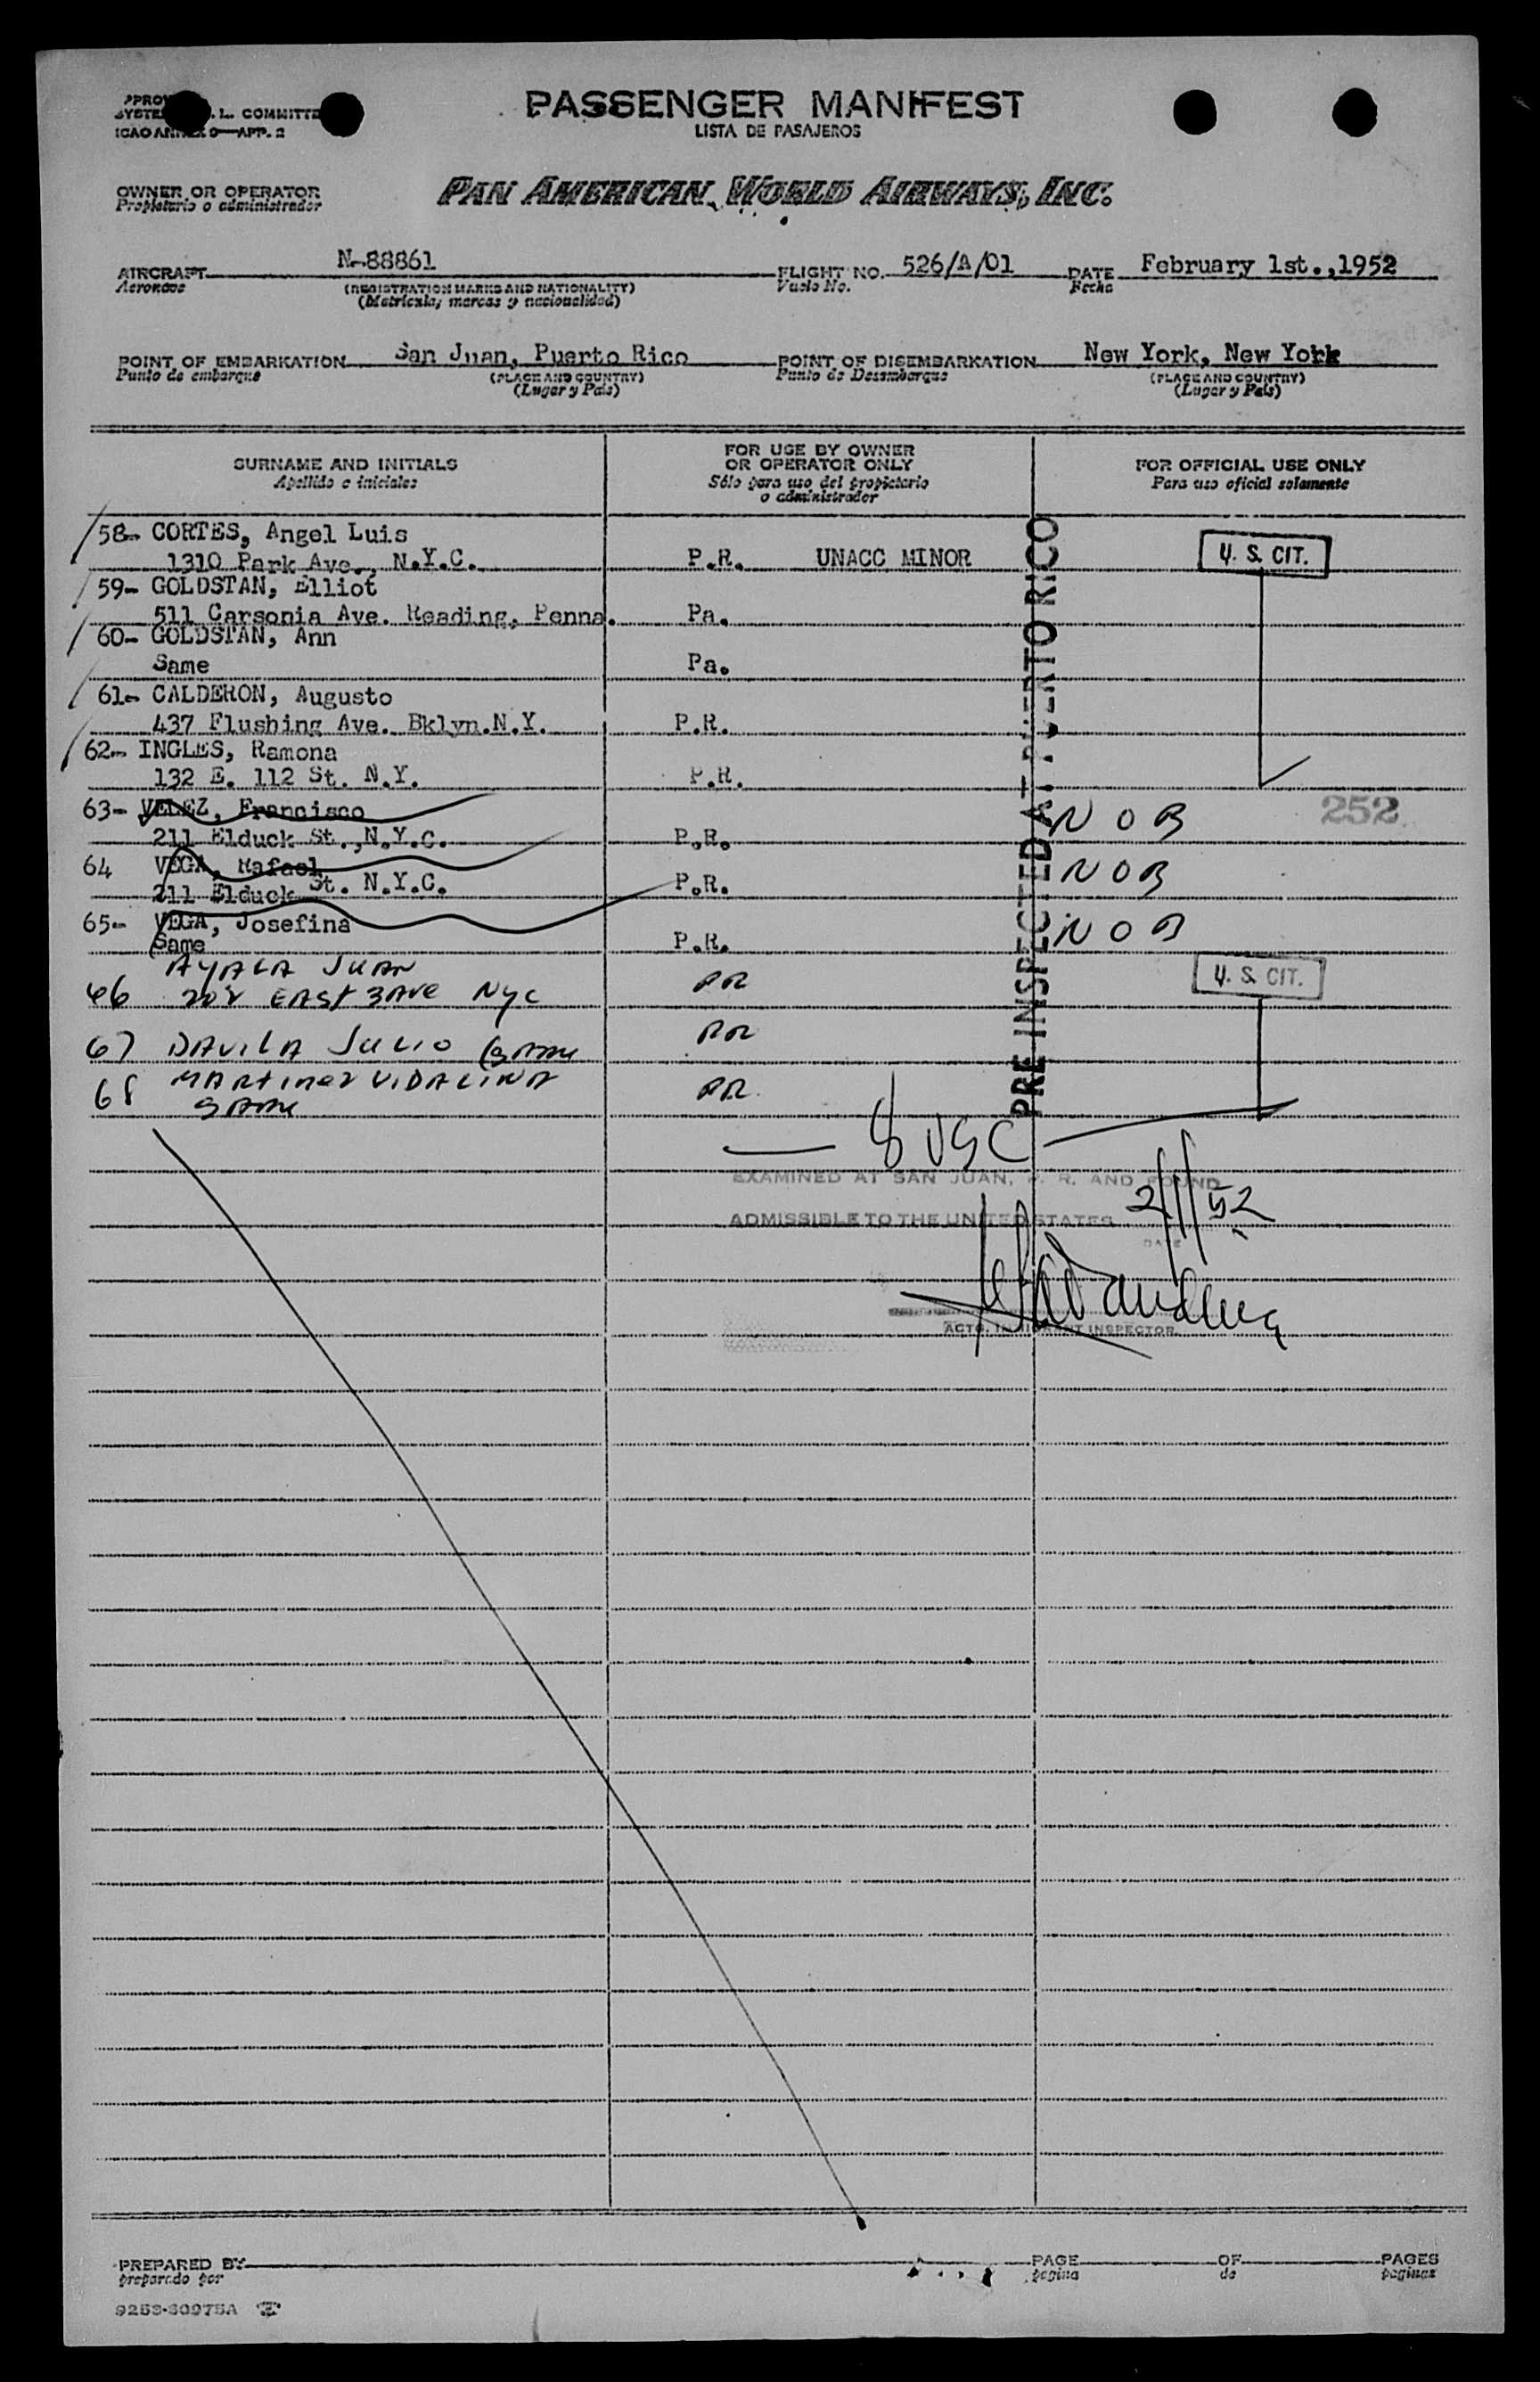 PASSENGER MANIFEST
LISTA DE PASAJEROS
L. COMMITTE
ICAO ANNEX 9—APP. 2
OWNER OR OPERATOR
Propietario o administrador
PAN AMERICAN WORLD AIRWAYS, INC.
AIRCRAFT N-88861 FLIGHT NO. 526/A/01 DATE February 1st.,1952
Aeronave (REGISTRATION MARKS AND NATIONALITY) Vuelo No. Fecha
(Matricula, marcas y nacionalidad)
POINT OF EMBARKATION San Juan, Puerto Rico POINT OF DISEMBARKATION New York, New York
Punto de embarque (PLACE AND COUNTRY) Punto de Desembarque (PLACE AND COUNTRY)
(Lugar y País) (Lugar y País)
SURNAME AND INITIALS
Apellido e iniciales
FOR USE BY OWNER
OR OPERATOR ONLY
Sólo para uso del propietario
o administrador
FOR OFFICIAL USE ONLY
Para uso oficial solamente
58- CORTES, Angel Luis
1310 Park Ave., N.Y.C. P.R. UNACC MINOR U. S. CIT.
59- GOLDSTAN, Elliot
511 Carsonia Ave. Reading, Penna. Pa.
60- GOLDSTAN, Ann
Same Pa.
61- CALDERON, Augusto
437 Flushing Ave. Bklyn.N.Y. P.R.
62- INGLES, Ramona
132 E. 112 St. N.Y. P.R.
63- VELEZ, Francisco
211 Elduck St.,N.Y.C. P.R. NOB 252
64 VEGA, Rafael
211 Elduck St. N.Y.C. P.R. NOB
65- VEGA, Josefina
Same P.R. NOB
AYALA JUAN
66 202 EAST 3AVE NYC PR U. S. CIT.
67 DAVILA JULIO (SAME PR
68 MARTINEZ VIDALINA
SAME PR.
PRE INSPECTED AT PUERTO RICO
8 USC
EXAMINED AT SAN JUAN, P. R. AND FOUND
ADMISSIBLE TO THE UNITED STATES 2/1/52
DATE
ACTG. IMMIGRANT INSPECTOR.
PREPARED BY PAGE OF PAGES
preparado por pagina de paginas
9253-30975A